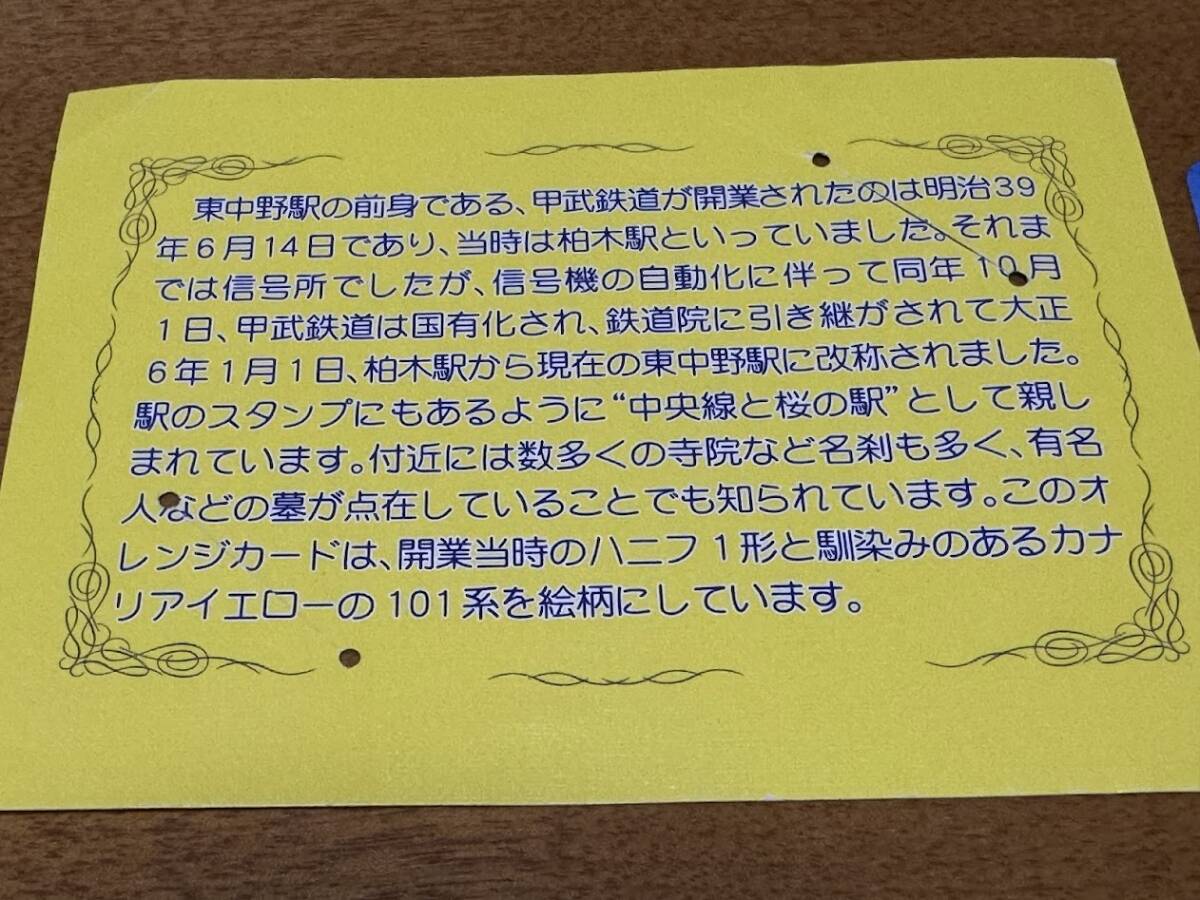 東中野駅の前身である、甲武鉄道が開業されたのは明治39
年6月14日であり、当時は柏木駅といっていました。それま
では信号所でしたが、信号機の自動化に伴って同年10月
1日、甲武鉄道は国有化され、鉄道院に引き継がされて大正
6年1月1日、柏木駅から現在の東中野駅に改称されました。
駅のスタンプにもあるように“中央線と桜の駅”として親し
まれています。付近には数多くの寺院など名刹も多く、有名
人などの墓が点在していることでも知られています。このオ
レンジカードは、開業当時のハニフ1形と馴染みのあるカナ
リアイエローの101系を絵柄にしています。